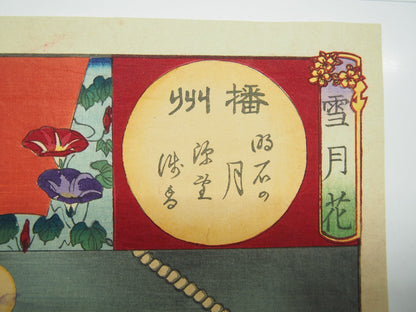 雪月花
播州
明石の
月
深雪
浅香